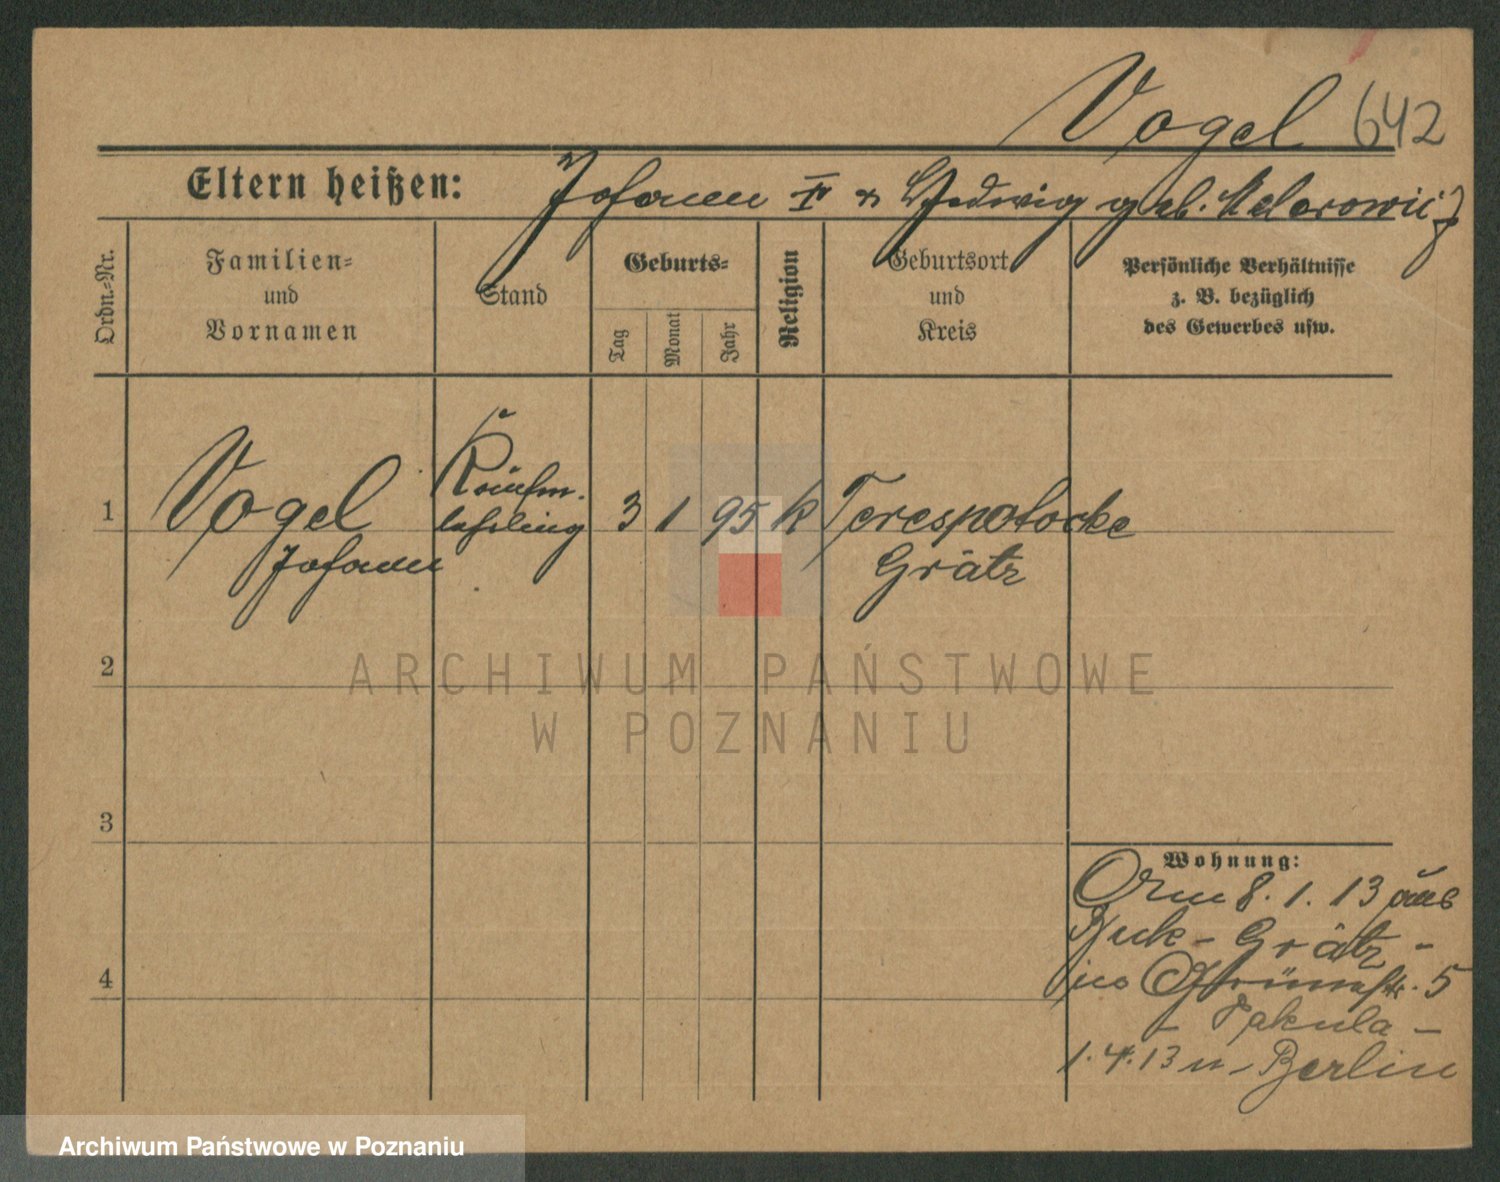 Vogel 642
Eltern heißen: Johann I u Hedwig geb.
Ordn.=Nr.
Familien=
und
Vornamen
Stand
Geburts=
Tag
Monat
Jahr
Religion
Geburtsort
und
Kreis
Persönliche Verhältnisse
z. B. bezüglich
des Gewerbes usw.
1 Vogel Kaufm. 3 1 95 k Terespotocke
Johann lehrling Grätz
2
3
4
Wohnung:
8. 1. 13 aus
Buk - Grätz -
ins Grünestr. 5
- Pakula -
1. 4. 13 n - Berlin
ARCHIWUM PAŃSTWOWE
W POZNANIU
Archiwum Państwowe w Poznaniu